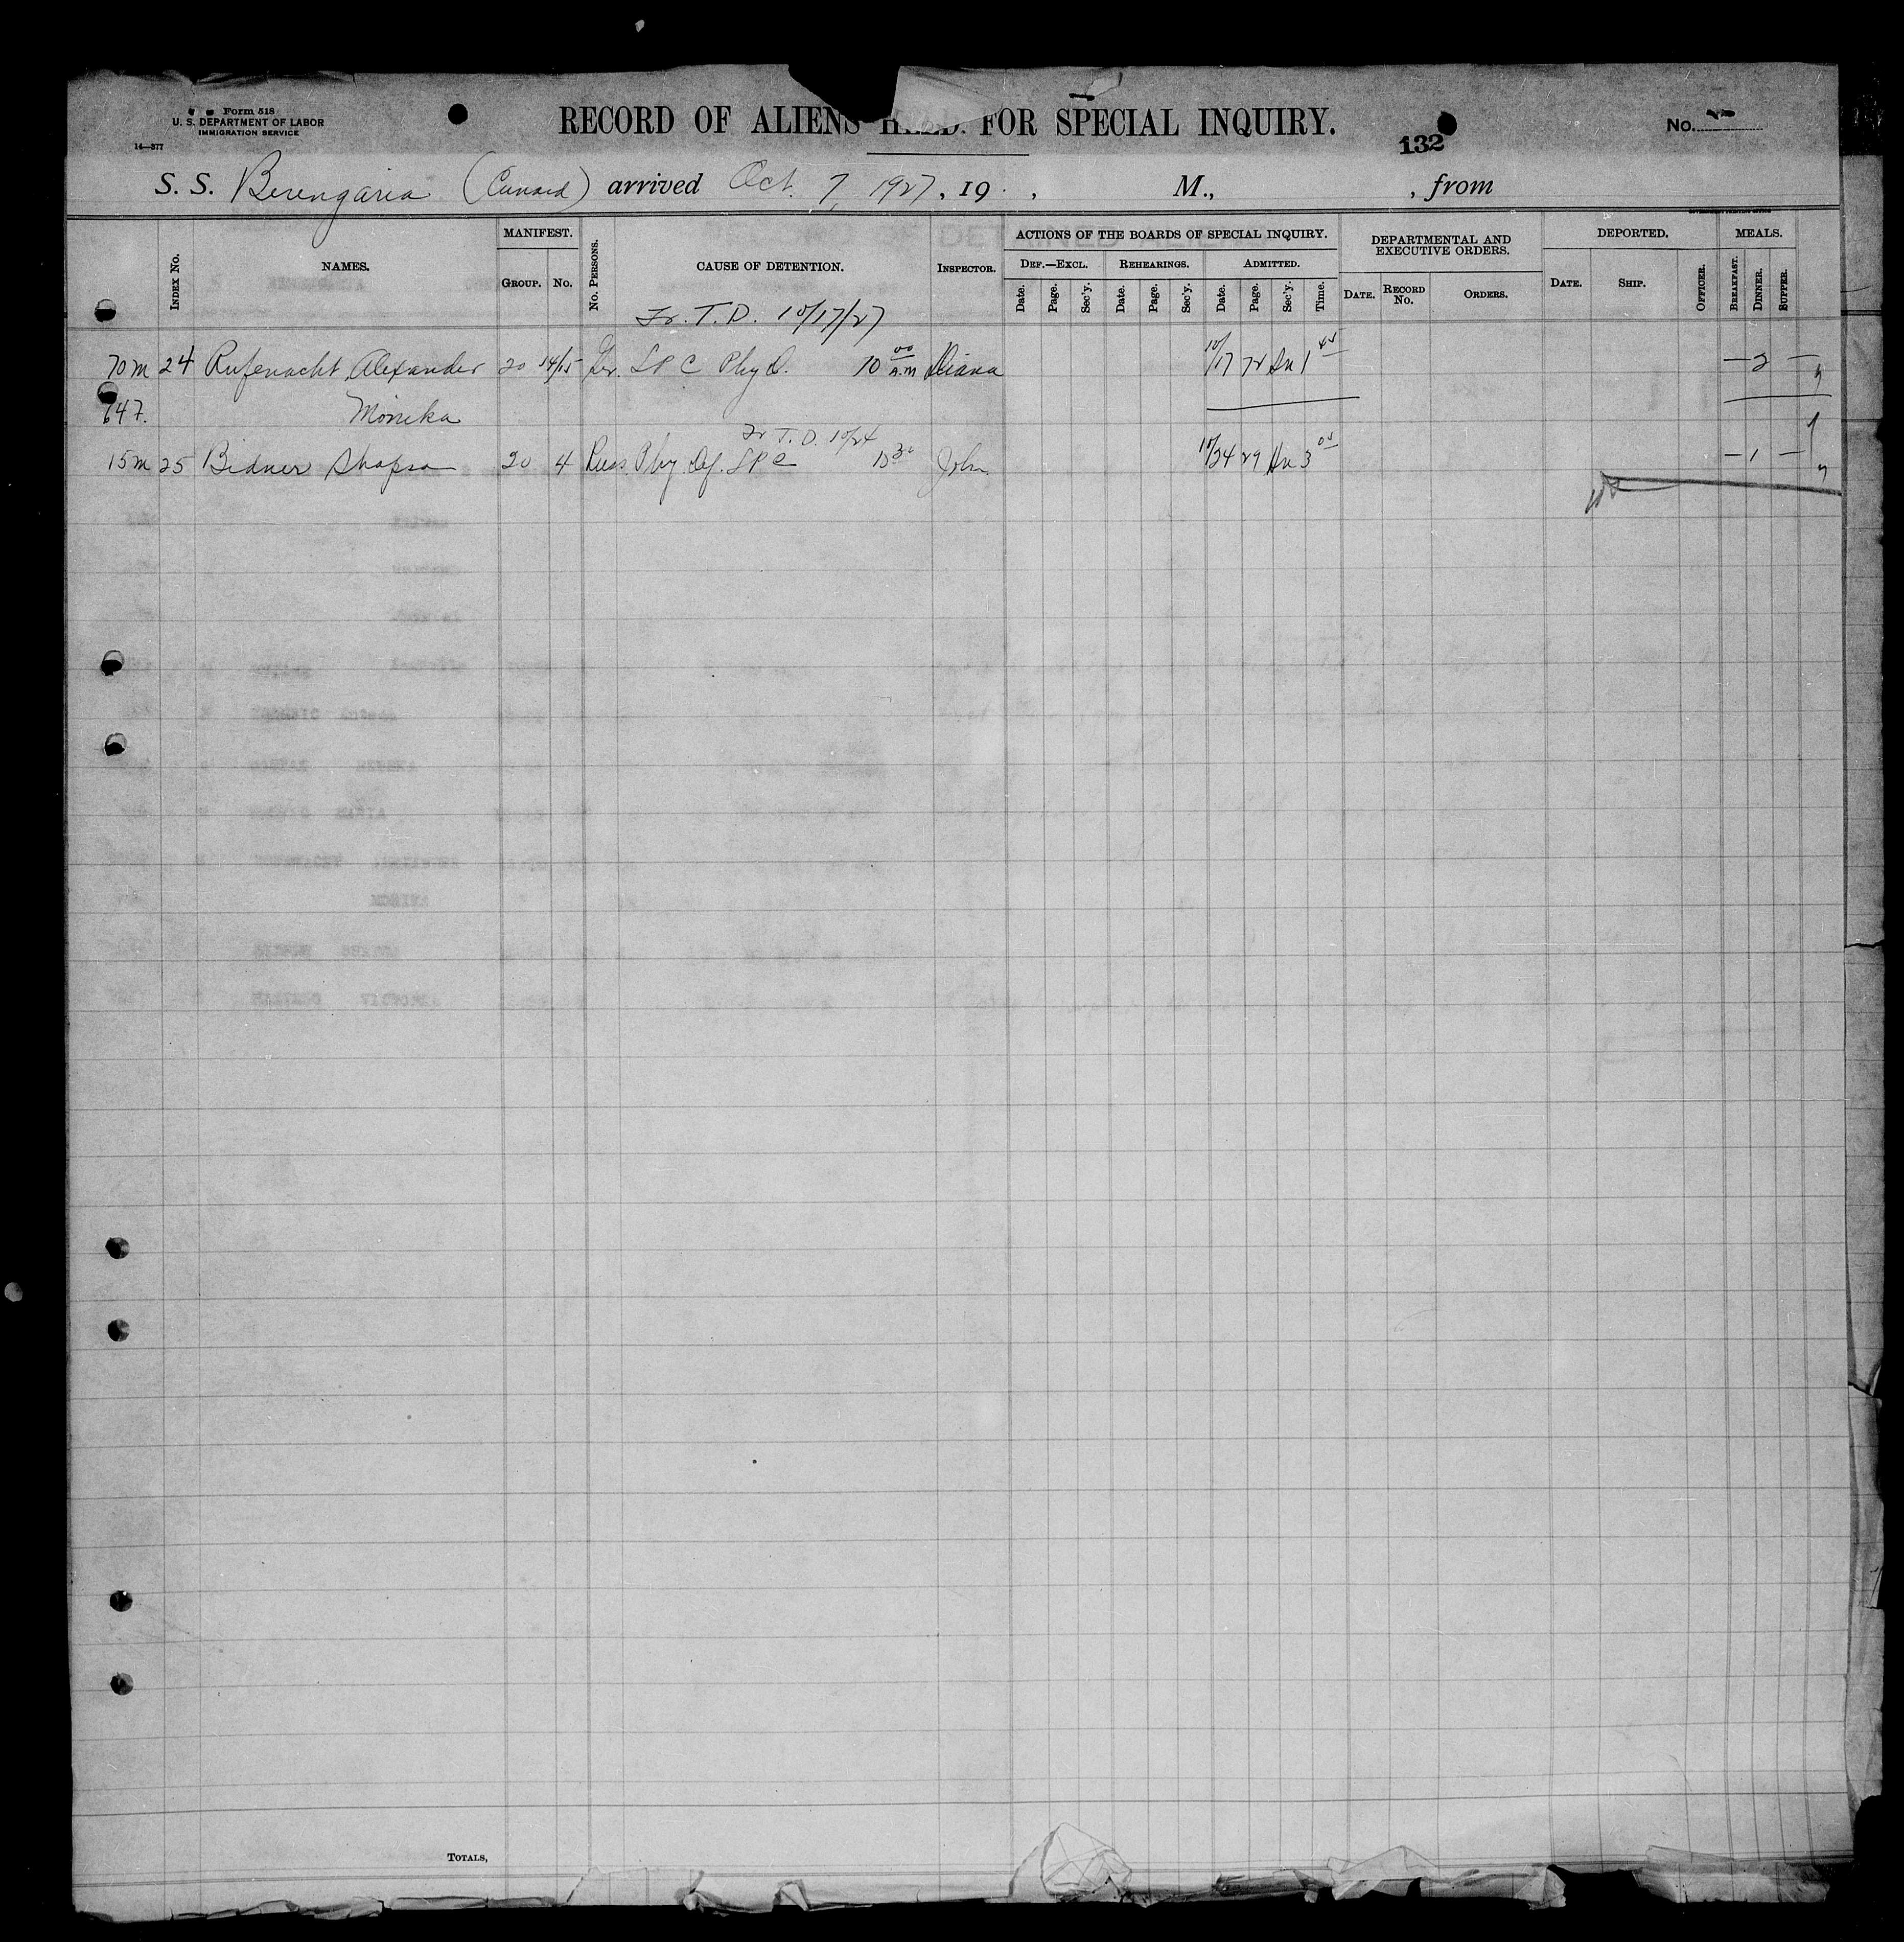 Form 518
U. S. DEPARTMENT OF LABOR
IMMIGRATION SERVICE
14—377
RECORD OF ALIENS HELD FOR SPECIAL INQUIRY.
132
No.
S. S. Berengaria (Cunard) arrived Oct. 7, 1927, 19 , M., , from
INDEX No.
NAMES.
MANIFEST.
GROUP. No.
No. PERSONS.
CAUSE OF DETENTION.
INSPECTOR.
ACTIONS OF THE BOARDS OF SPECIAL INQUIRY.
DEF.—EXCL. REHEARINGS. ADMITTED.
Date. Page. Sec'y. Date. Page. Sec'y. Date. Page. Sec'y. Time.
DEPARTMENTAL AND
EXECUTIVE ORDERS.
DATE. RECORD No. ORDERS.
DEPORTED.
DATE. SHIP. OFFICER.
MEALS.
BREAKFAST. DINNER. SUPPER.
Fr. T. D. 10/17/27
70m 24 Rufenacht Alexander 20 14/15 Ger. LPC Phy D. 10 00 A.M Diana 10/17 72 1 45 — 2 —
647. Monika
Fr T. D. 10/24
15m 25 Bidner Shapsa 20 4 Russ. Phy. Df. LPC 10 30 John 10/24 29 3 05 — 1 —
TOTALS,